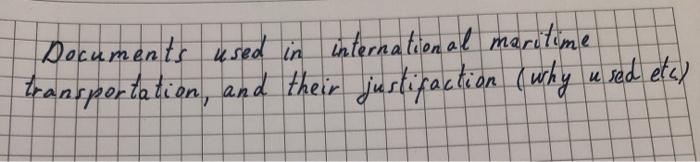 Documents used in international maritime
transportation, and their justifaction (why used etc)